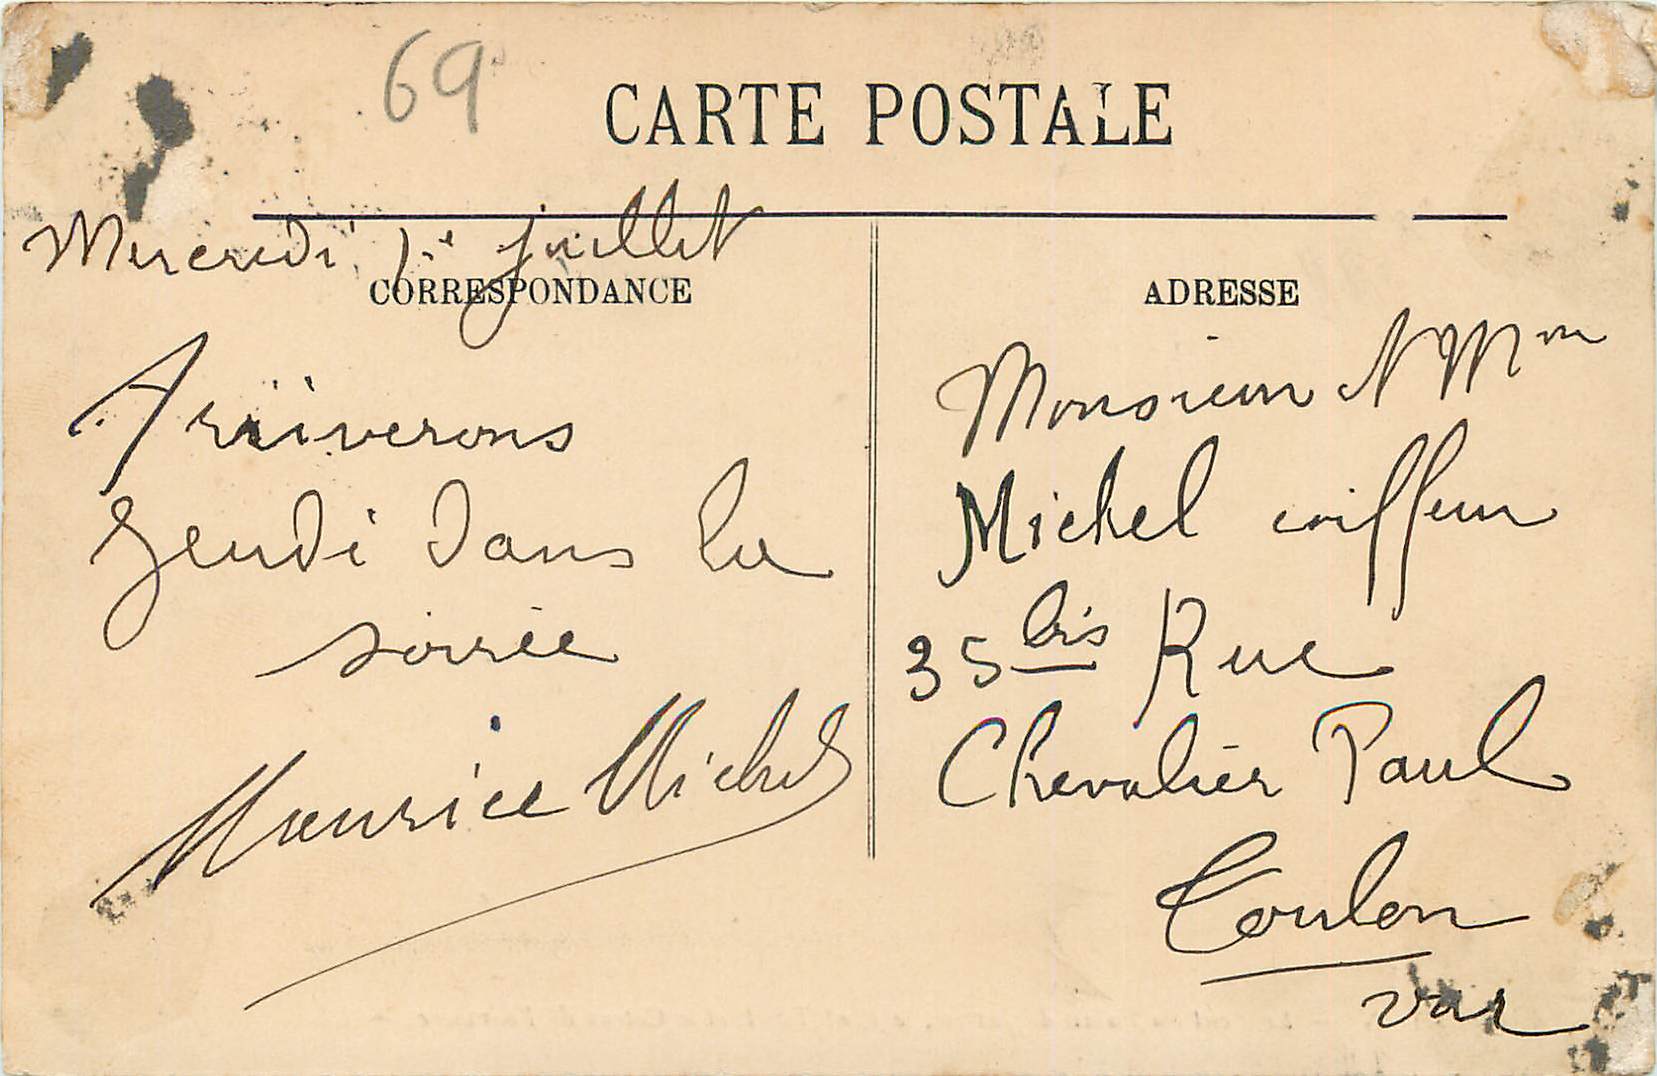 69
CARTE POSTALE
Mercredi 1er Juillet
CORRESPONDANCE
Arriverons
Jeudi dans la
soirée
Maurice Michel
ADRESSE
Monsieur & Mme
Michel coiffeur
35 bis Rue
Chevalier Paul
Toulon
Var